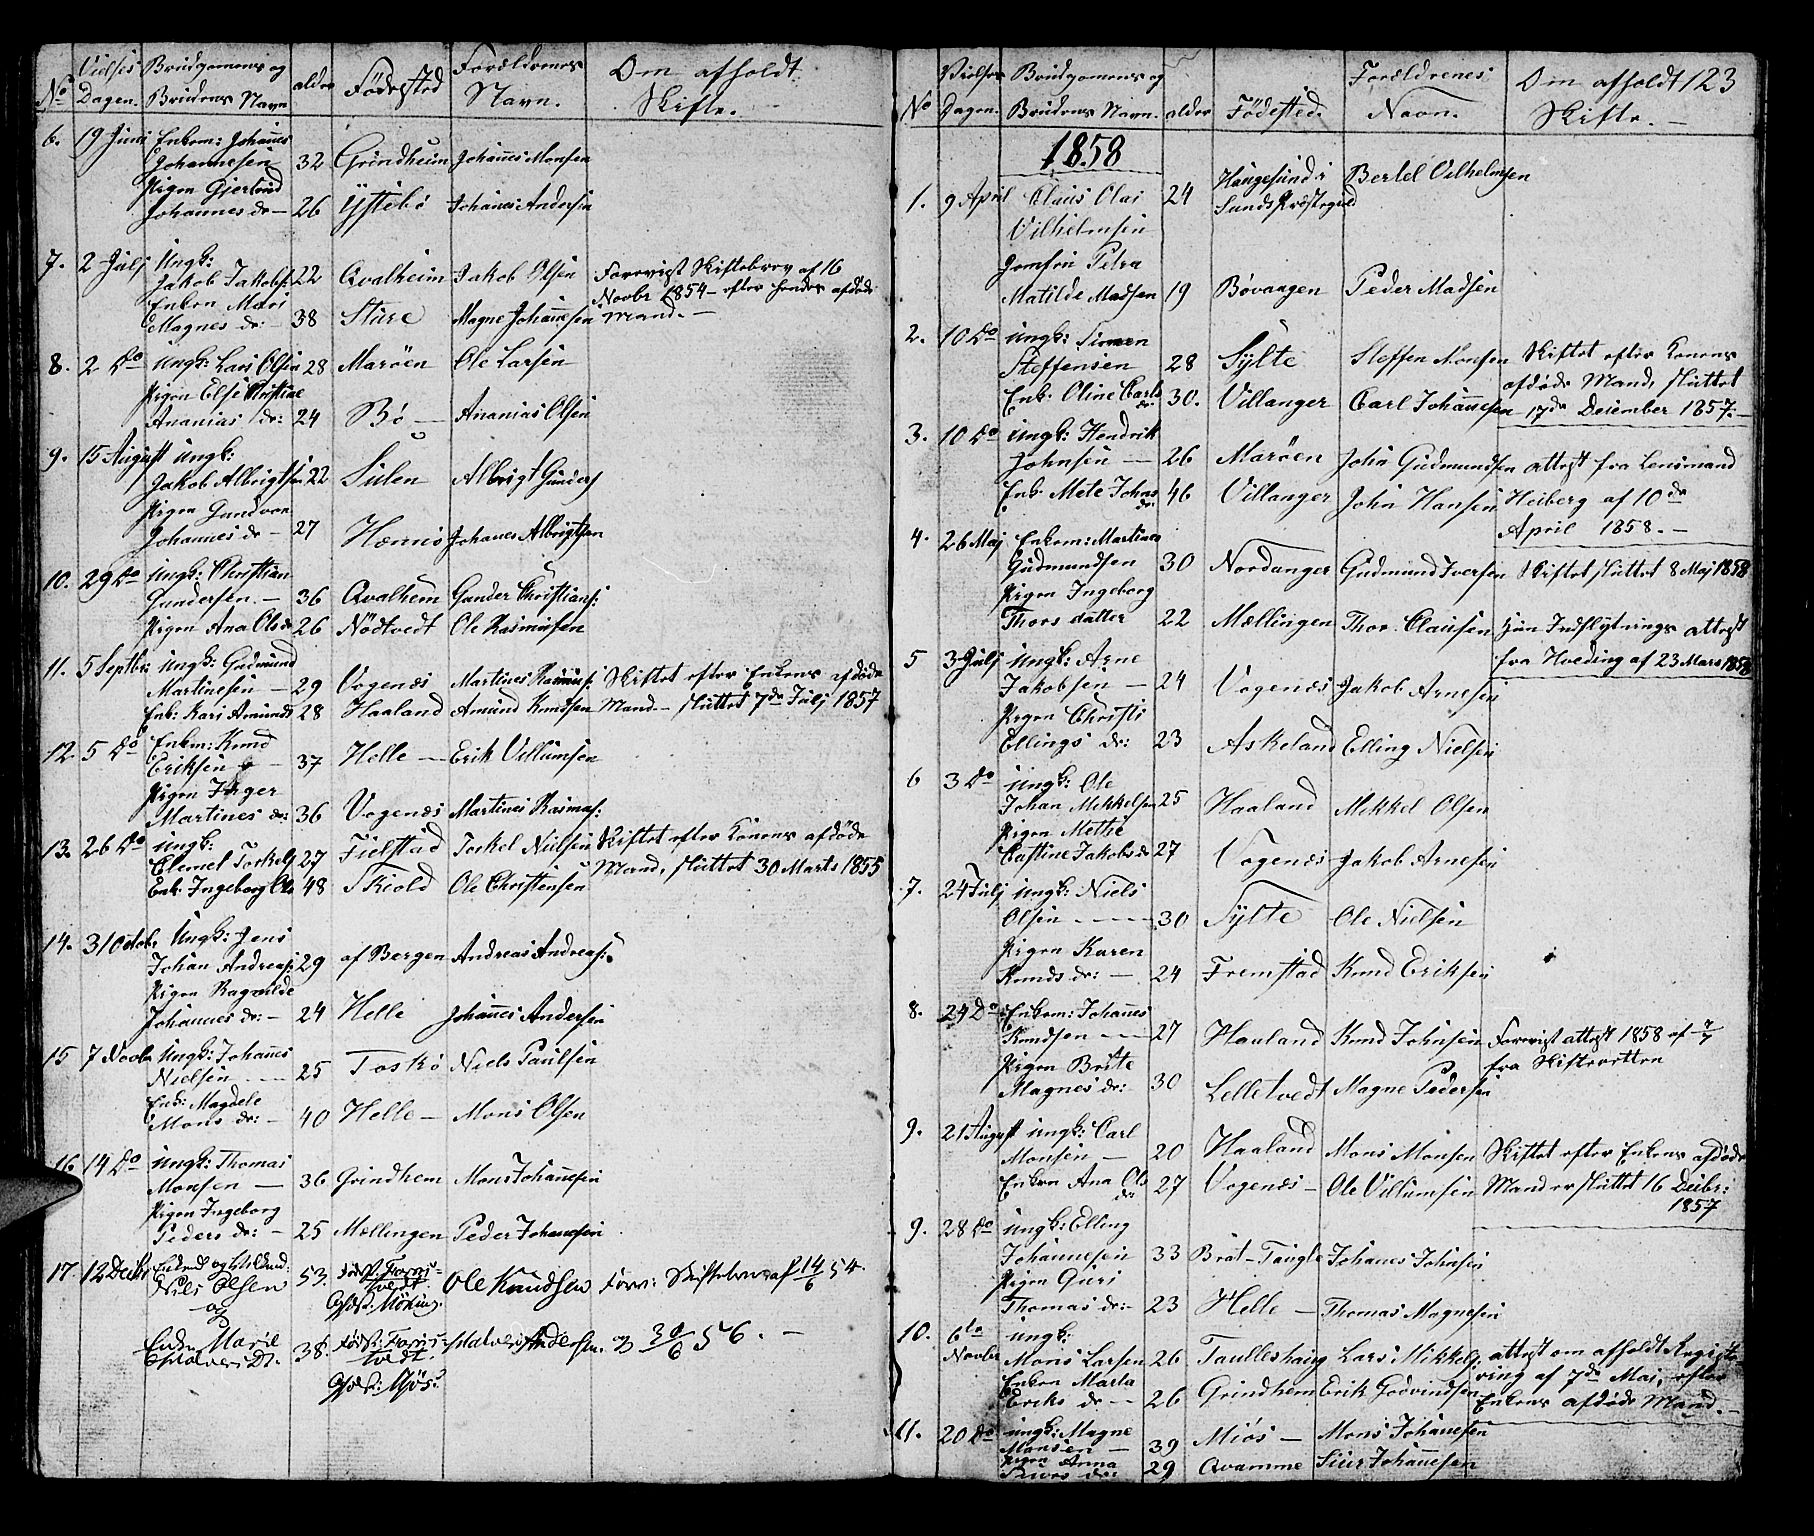 No Vielses Dagen. Brudgomens og Brudens Navn alder Födested Forældrenes Navn. Om afholdt Skifte.
6. 19 Juni Enkem: Johañes
Johannesen 32 Grindheim Johañes Monsen
Pigen Gjertrud
Johannes dr — 26 Ystebö Johañes Andersen
7. 2 Julj Ungk:
Jakob Jakobs: 22 Qvalheim Jakob Olsen Forevist Skiftebrev af 16
Enken Mari Novbr 1854 — efter hendes afdöde
Magnes dr: — 38 Sture Magne Johañesen Mand. —
8. 2 Do Ungk: Lars Olsen 28 Maröen Ole Larsen
Pigen Else Christine
Ananias dr: 24 Bö — Ananias Olsen
9. 15 August Ungk:
Jakob Albrigtsen 22 Sulen Albrigt Gunders
Pigen Gundvor
Johannes dr — 27 Hennö Johañes Albrigtsen
10. 29 Do Ungk: Christian
Gundersen. — 36 Qvalhem Gunder Christians:
Pigen Ana Ols dr 26 Nödtvedt Ole Rasmusen
11. 5 Septbr: Ungk: Gudmund
Martinesen — 29 Vogenæs Martines Rasmus: Skiftet efter Enkens afdöde
Enk: Kari Amunds 28 Haaland Amund Knudsen Mand — sluttet 7de Julj 1857
12. 5 Do Enkem: Knud
Eriksen — 37 Helle — Erik Villumsen
Pigen Inger
Martines dr: 36 Vogenæs Martines Rasmus:
13. 26 Do Ungk:
Clemet Torkels 27 Fielstad Torkel Nielsen Skiftet efter Konens afdöde
Enk: Ingeborg Ols 48 Skiold Ole Christensen Mand, sluttet 30 Marts 1855
14. 31 Octob. Ungk: Jens
Johan Andreas: 29 af Bergen Andreas Andreas:
Pigen Ragnilde
Johannes dr: — 24 Helle Johañes Andersen
15 7 Novbr Ungk: Johañes
Nielsen — 25 Toskö Niels Paulsen
Enk: Magdele
Mons dr: — 40 Helle — Mons Olsen
16 14 Do Ungk: Thomas
Monsen — 36 Grindhem Mons Johañesen
Pigen Ingeborg
Peders dr: — 25 Mællingen Peder Johañesen
17. 12 Decbr Enkem og
Nils Olsen 53. Ole Knudsen Forev: Skiftebrev af 14/6 54.
og
Enke Marie
38. Andersen. 30/6 56. —
No Vielses Dagen. Brudgomens og Brudens Navn. alder Födested. Forældrenes Navn. Om afholdt Skifte. — 123
1858
1. 9 April Claus Olai 24 Haugesund i Sunds Præstegield Bertel Vilhelmsen
Vilhelmsen
Jomfru Petra
Matilde Madsen 19 Bövangen Peder Madsen
2. 10 Do Ungk: Simen
Steffensen 28 Sylte Steffen Monsen Skiftet efter Konens
Enk: Oline Carls dr: 30. Villanger Carl Johañesen afdöde Mand, sluttet
17de Decmber 1857. —
3. 10 Do Ungk: Hendrik
Johnsen — 26 Maröen John Gudmundsen attest fra Lensmand
Enk: Mete Johns dr: 46 Villanger John Hansen Heiberg af 10de
April 1858. —
4. 26 Maj Enkem: Martines
Gudmundsen 30 Nordanger Gudmund Iversen Skiftet sluttet 8 Maj 1858
Pigen Ingeborg
Thors datter 22 Mællingen Thor Clausen hun Indflytnings attest
fra Hveding af 23 Mars 1858
5 3 Julj Ungk: Arne
Jakobsen — 24 Vogenæs Jakob Arnesen
Pigen Christi
Ellings dr: 23 Askeland Elling Nielsen
6 3 Do Ungk: Ole
Johan Mikkelsen 25 Haaland Mikkel Olsen
Pigen Methe
Castine Jakobs dr 27 Vogenæs Jakob Arnesen
7. 24 Julj Ungk: Niels
Olsen — 30 Sylte Ole Nielsen
Pigen Karen
Knuds dr: — 24 Fremstad Knud Eriksen
8. 24 Do Enkem: Johañes
Knudsen — 27 Haaland Knud Johnsen Forevist attest 1858 af
Pigen Brite fra Skifteretten
Magnes dr: 30 Lelletvedt Magne Pedersen
9. 21 August Ungk: Carl
Monsen — 20 Haaland Mons Monsen Skiftet efter Enkens afdöde
Enken Ana Ols dr: 27 Vogenæs — Ole Villumsen Mand er sluttet 16 Decbr:
1857
9. 28 Do Ungk: Elling
Johannesen 33 Brat-Tangle Johañes Johnsen
Pigen Guri
Thomas dr: — 23 Helle — Thomas Magnesen
10. 6te Novbr Ungk:
Mons Larsen 26 Taulleshaug Lars Mikkels: attest om afholdt Registe-
Enken Marta ring af 7de Maj, efter
Eriks dr — 26 Grindhem Erik Godvindsen Enkens afdöde Mand. —
11. 20 Do Ungk: Magne
Monsen — 39 Miös — Mons Johañesen
Pigen Anna
dr: 29 Qvamme Siur Johañesen